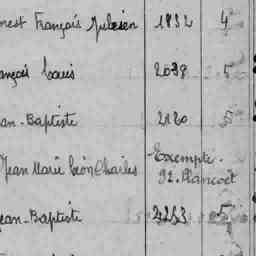 nest François Julien 1832 4
ançois Louis 2088 5
an-Baptiste 2120 5
Jean Marie Léon Charles Exempté.
92. Plancoët
ean-Baptiste 2253 5